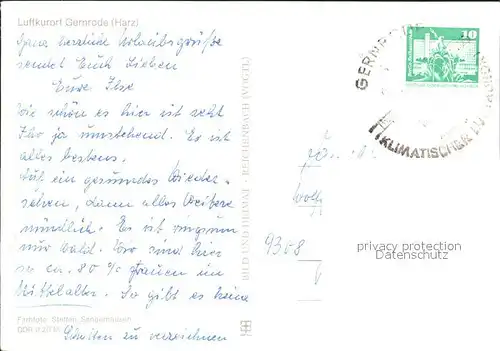 Luftkurort Gernrode (Harz)
Ganz herzliche Urlaubsgrüße
sendet Euch Lieben
Eure Ilse
Wie schön es hier ist seht
Ihr ja umstehend. Es ist
alles bestens.
Auf ein gesundes Wieder-
sehen, dann alles Weitere
mündlich. Es ist ringsum
nur Wald. Wir sind hier
so ca. 80 % Frauen im
Mittelalter. So gibt es keine
zu verzeichnen
DDR
BILD UND HEIMAT · REICHENBACH (VOGTL)
10
GERNRODE
KLIMATISCHER LU
9308
privacy protection
Datenschutz